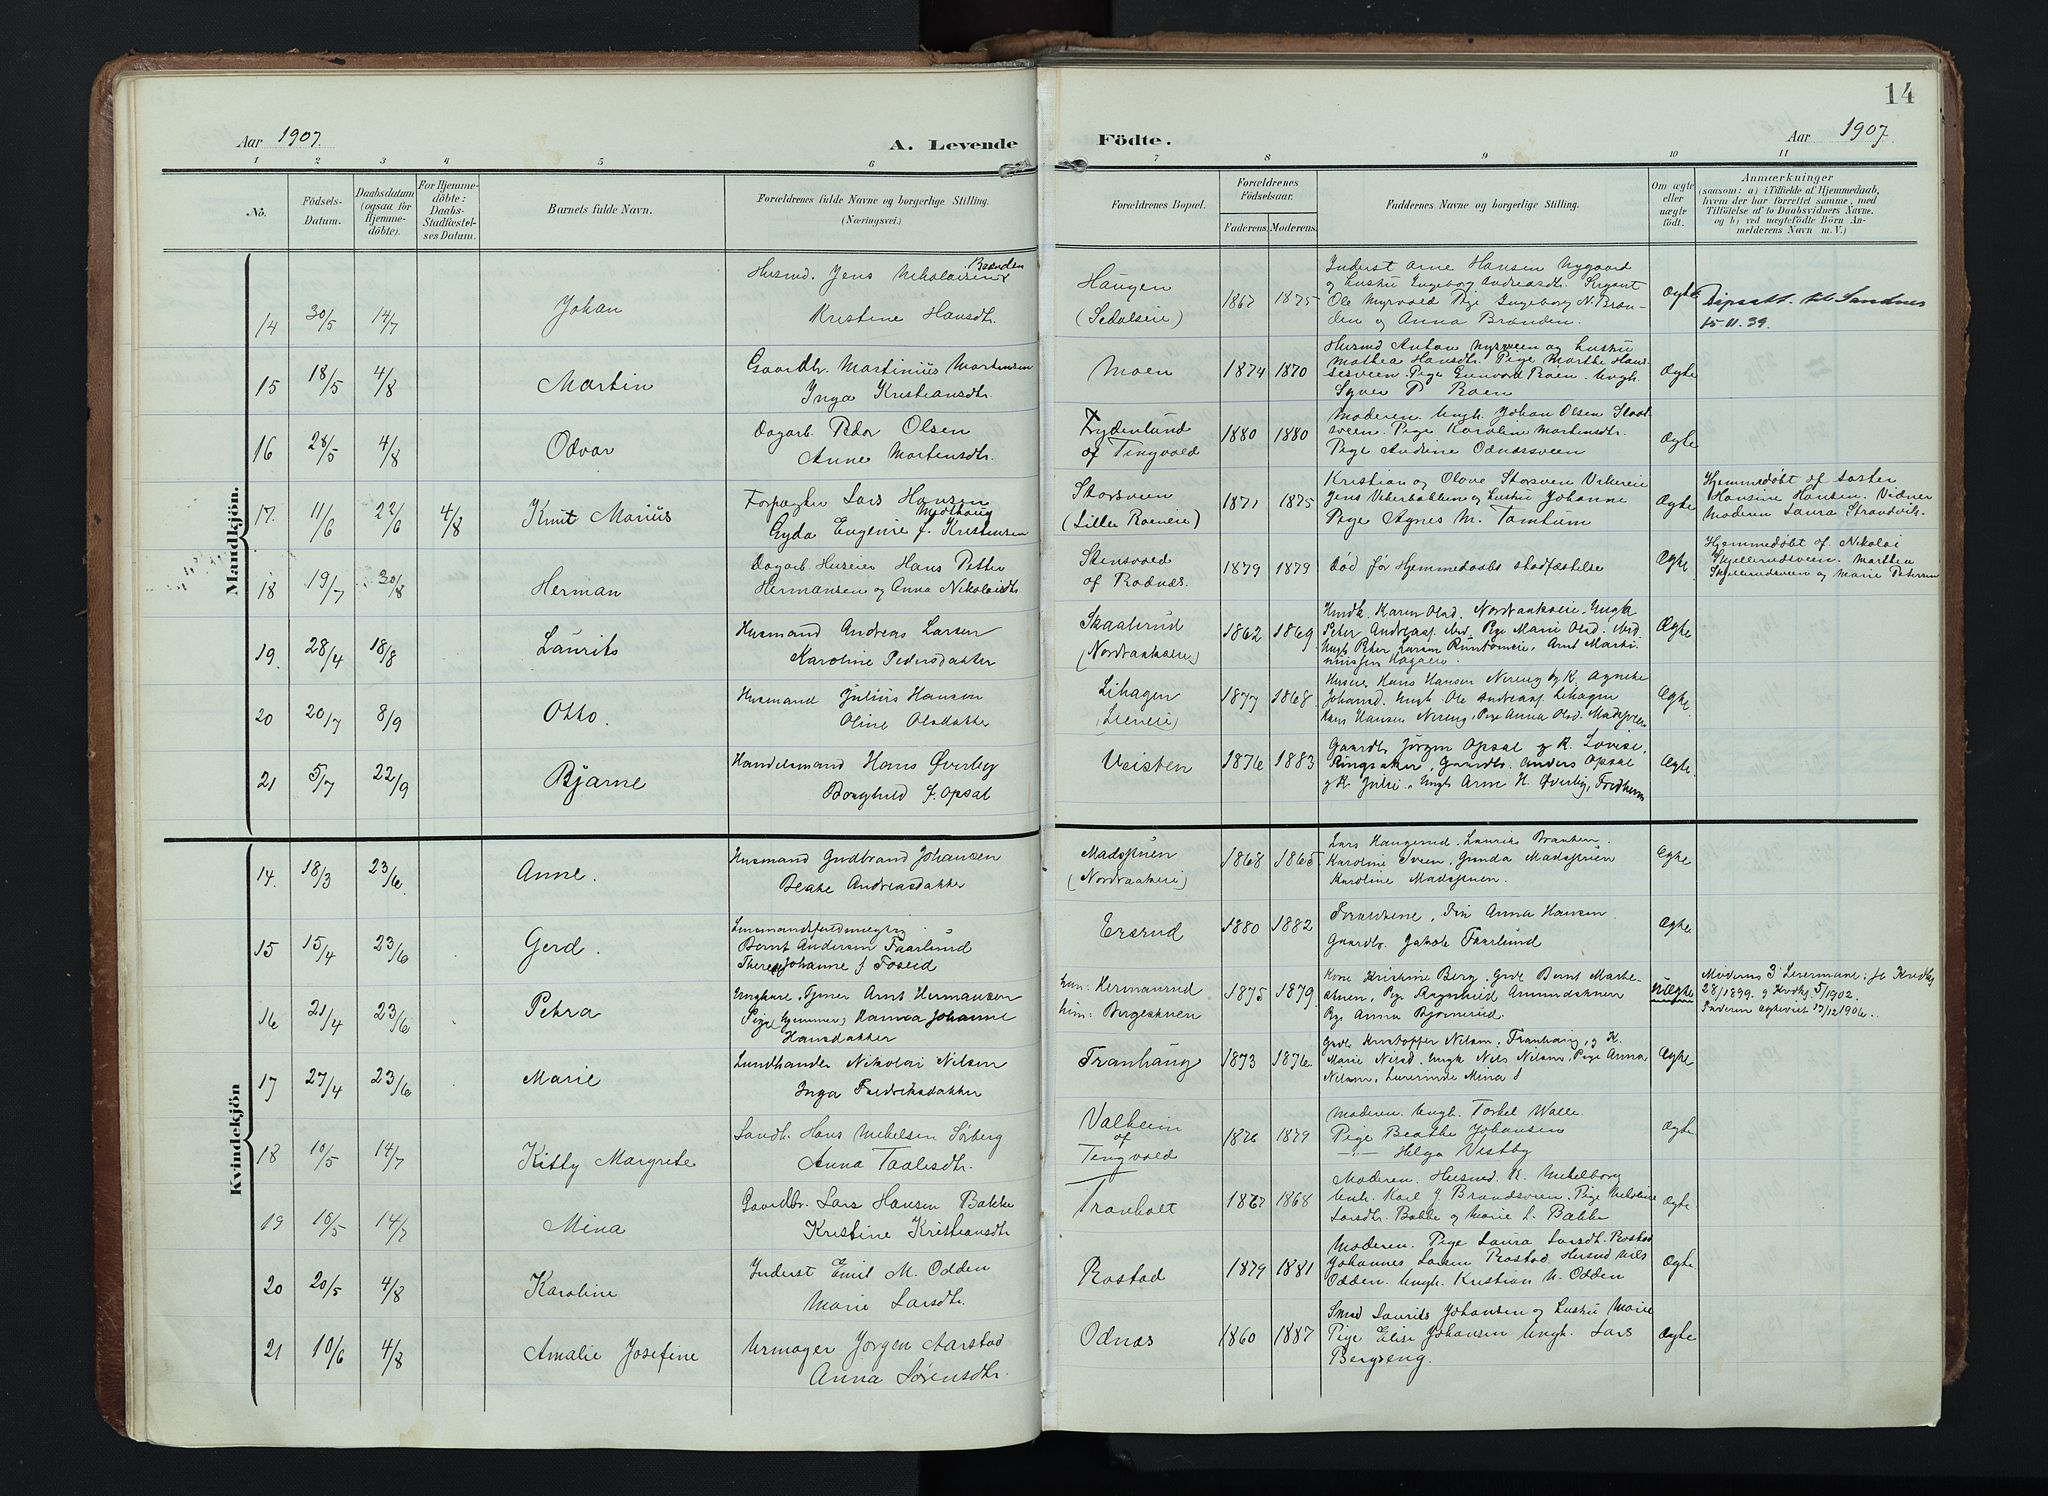 14
Aar 1907.
A. Levende
Födte.
Aar 1907.
1 2 3 4 5 6 7 8 9 10 11
No.
Födsels-
Datum.
Daabsdatum
(ogsaa for
Hjemme-
döbte).
For Hjemme-
döbte:
Daabs-
Stadfæstel-
ses Datum.
Barnets fulde Navn.
Forældrenes fulde Navne og borgerlige Stilling.
(Næringsvei.)
Forældrenes Bopæl.
Forældrenes
Födselsaar.
Faderens. Moderens.
Faddernes Navne og borgerlige Stilling.
Om ægte
eller
uægte
født.
Anmærkninger
(saasom: a) i Tilfælde af Hjemmedaab,
hvem der har forrettet samme, med
Tilföielse af to Daabsvidners Navne.
og b) ved uægtefödte Börn An-
melderens Navn m. V.)
Mandkjön.
14 30/5 14/7 Johan
Husmd. Jens Nikolaisen Brænden
Kristine Hansdtr.
Haugen
(Sedalseie)
1867 1875
Inderst Arne Hansen Nygaard
og hustru Ingeborg Andreasdtr.
Ole Myrvold Pige Ingeborg N. Bræn-
den og Anna Brænden.
Ægte
til Sandnes
15-11.39.
15 18/5 4/8 Martin
Gaardbr. Martinius Martinsen
Inga Kristiansdtr.
Moen
1874 1870
Husmd Anton Nysveen og hustru
Mathea Hansdtr. Pige Marthe Hans-
Pige Gunvord Roen. Ungk.
Syver P Roen
Ægte
16 28/5 4/8 Odvar
Dagarb. Peder Olsen
Anne Martensdtr.
Frydenlund
af Tingvold
1880 1880
Moderen. Ungk. Johan Olsen
sveen. Pige Karoline Martensdtr.
Pige Andrine Odnæssveen
Ægte
17. 11/6 22/6 4/8 Knut Marius
Forpagter Lars Hansen
Medhaug
Gyda Eugenie f. Kristensen
Storsveen
(Lille Roeneie)
1871 1875
Kristian og Olava Storsveen
Jens Vekerbakken og hustru Johanne
Pige Agnes M. Tamlum
Ægte
Hjemmedøbt af søster
Hansine Hansen. Vidner
Moderen Laura Strandvik.
18 19/7 30/8 Herman
Dagarb Huseier Hans Petter
Hermansen og Anna Nikolaidtr.
Stensveed
af Rodnæs.
1879 1879
død før Hjemmedaabs stadfæstelse
Ægte
Hjemmedøbt af Nikolai
Skjellerudsveen. Marthea
Skjellerudsveen og Marie Petersen
19. 28/4 18/8 Laurits
Husmand Andreas Larsen
Karoline Pedersdatter
Skaalerud
(Nordraakseie)
1862 1869
Karen Olsd. Nordraakseie, Ungk
Peter Andreass. ibid. Pige Marie Olsd. ibid.
Ungk Peter Larsen Arnt Marti-
niussen Hagaeie.
Ægte
20 20/7 8/9 Otto.
Husmand Julius Hansen
Oline Olsdatter
Lihagen
(Lieneie)
1877 1868
Huseier Hans Hansen Nereng og K. Agnethe
Johansd. Ungk Ole Andreass. Lihagen
Hans Hansen Nereng, Pige Anna Olsd. Madspveen
Ægte.
21 5/7 22/9 Bjarne
Handelsmand Hans Øverby
Borghild f. Opsal
Veisten
1876 1883
Gaardb. Jørgen Opsal og K. Lovise,
Ringsaker, Gaardb. Anders Opsal
og K. Julie. Ungk Arne H. Øverby, Fredheim
Ægte.
Kvindekjön
14. 18/3 23/6. Anne.
Husmand Gudbrand Johansen
Beate Andreasdatter
Madspuen
(Nordraakseie)
1868 1865.
Lars Haugerud, Laurits Braaten.
Karoline Sveen, Gunda Madspuen
Karoline Madspuen.
Ægte
15 15/4 23/6 Gerd.
Lensmandsfuldmægtig
Bernt Andersen Faarlund
Therese Johanne f Foseid
Ersrud
1880 1882
Forældrene, Frk Anna Hansen
Gaardbr. Jakob Faarlund
Ægte
16 21/4 23/6 Petra
Ungkarl, Tjener Arnt Hermansen
Pige (hjemme) Hanna Johanne
Hansdatter
han: Hermanrud
hun: Bergeshuen
1875 1879
Kone Kristine Berg. Gbr. Bernt Marte-
Pige Ragnhild Amundshuen
Pige Anna Bjørnerud.
uægte
Moderens 3' Leiermaal;
28/1899. og Kvdkj. 5/1902.
Faderen ægteviet 17/12 1906.
17 27/4 23/6 Marie
Landhandler Nikolai Nilsen
Inga Fredriksdatter
Tranhaug
1873 1876
Gbr. Kristoffer Nilsen, Tranhaug, og K.
Marie Nilsd. Ungk Nils Nilsen, Pige Anna
Nilsen, Lærerinde Mina f
Ægte
18 10/5 14/7 Kitty Margrete
Landh. Hans Mikelsen Sørberg
Anna Taalesdtr.
Valheim
af
Tingvold
1876 1879
Moderen. Ungk. Torkel Walle.
Pige Beathe Johansen
—"— Helga Vestby
Ægte
19 16/5 14/7 Mina
Gaardbr. Lars Hansen Bakke
Kristine Kristiansdtr
Tranholt
1867 1868
Moderen. Husmd. K. Mikelborg
Ungk. Karl J. Brandsveen. Pige Melvine
Larsdtr. Bakke og Marie L. Bakke
Ægte
20 20/5 4/8 Karoline
Inderst Emil M. Odden
Marie Larsdtr.
Rostad
1879 1881
Moderen. Pige Laura Larsdtr. Rostad
Johannes Larsen Rostad Husmd Nils
Odden. Ungk. Kristian N. Odden
Ægte.
21 10/6 4/8 Amalie Josefine
Urmager Jørgen Aarstad
Anna Sørensdtr.
Odnæs
1860 1887
Smed Laurits Johansen og hustru Marie
Pige Elise Johansen Ungk. Lars
Bergseng.
Ægte